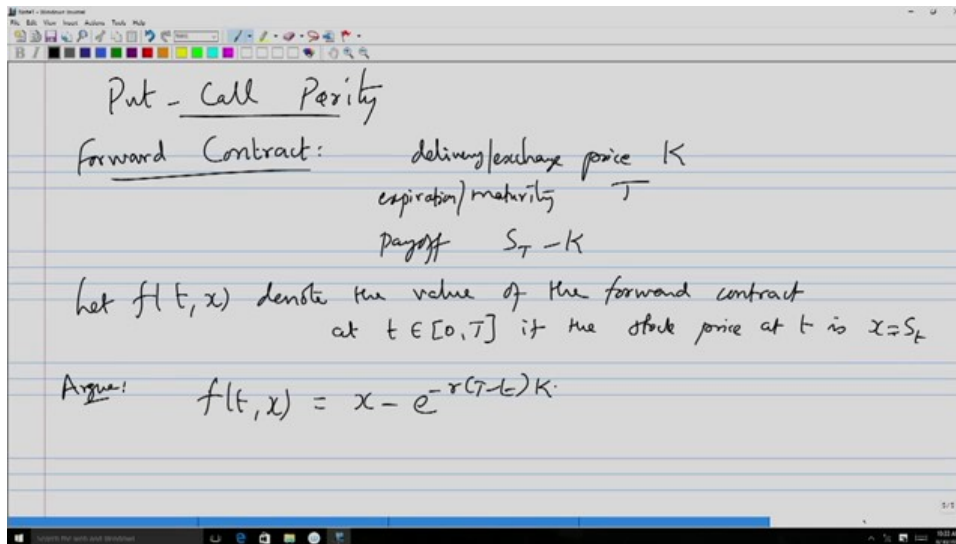 Note1 - Windows Journal
File Edit View Insert Actions Tools Help
B I
Put - Call Parity
Forward Contract: delivery/exchange price K
expiration/maturity T
payoff S_T - K
Let f(t, x) denote the value of the forward contract
at t ∈ [0, T] if the stock price at t is x = S_t
Argue: f(t, x) = x - e^{-r(T-t)} K.
5/5
Search the web and Windows